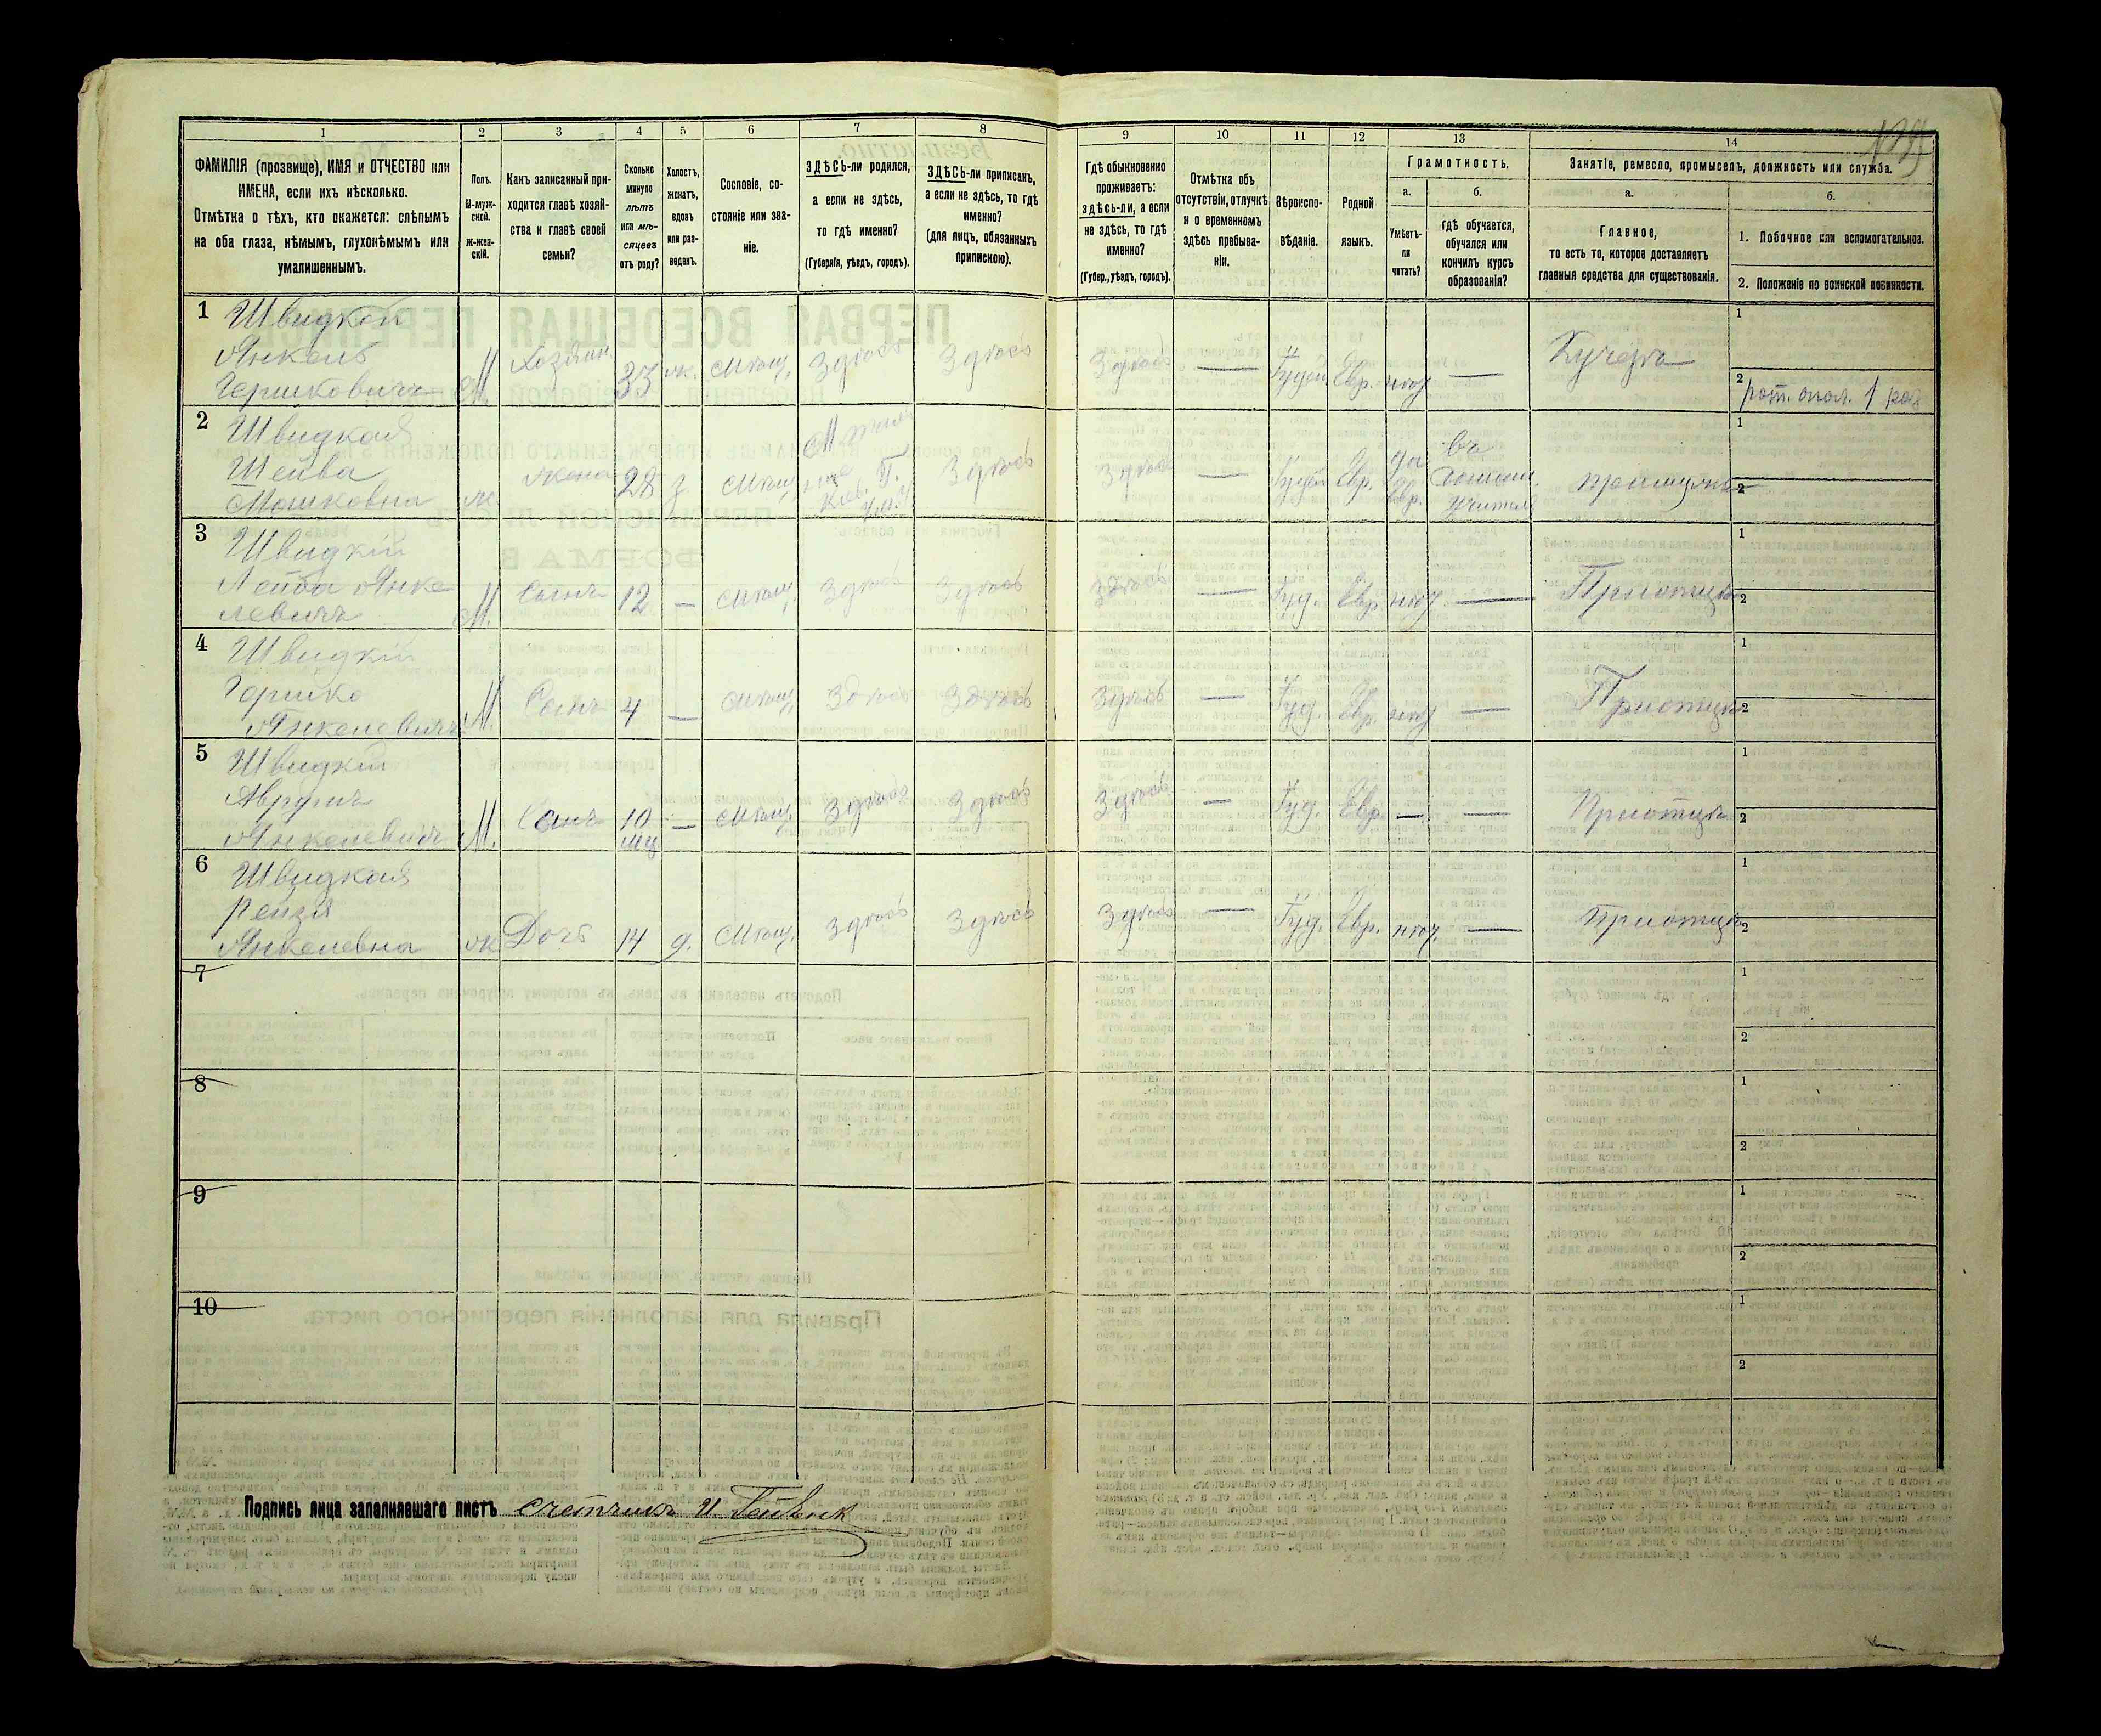 1 2 3 4 5 6 7 8 9 10 11 12 13 14
ФАМИЛІЯ (прозвище), ИМЯ и ОТЧЕСТВО или
ИМЕНА, если ихъ нѣсколько.
Отмѣтка о тѣхъ, кто окажется: слѣпымъ
на оба глаза, нѣмымъ, глухонѣмымъ или
умалишеннымъ.
Полъ.
М-муж-
ской.
ж-жен-
скій.
Какъ записанный при-
ходится главѣ хозяй-
ства и главѣ своей
семьи?
Сколько
минуло
лѣтъ
или мѣ-
сяцевъ
отъ роду?
Холостъ,
женатъ,
вдовъ
или раз-
веденъ.
Сословіе, со-
стояніе или зва-
ніе.
ЗДѢСЬ-ли родился,
а если не здѣсь,
то гдѣ именно?
(Губернія, уѣздъ, городъ).
ЗДѢСЬ-ли приписанъ,
а если не здѣсь, то гдѣ
именно?
(для лицъ, обязанныхъ
припискою).
Гдѣ обыкновенно
проживаетъ:
здѣсь-ли, а если
не здѣсь, то гдѣ
именно?
(Губер., уѣздъ, городъ).
Отмѣтка объ
отсутствіи, отлучкѣ
и о временномъ
здѣсь пребыва-
ніи.
Вѣроиспо-
вѣданіе.
Родной
языкъ.
Грамотность.
а.
Умѣетъ-
ли
читать?
б.
гдѣ обучается,
обучался или
кончилъ курсъ
образованія?
Занятіе, ремесло, промыселъ, должность или служба.
а.
Главное,
то есть то, которое доставляетъ
главныя средства для существованія.
б.
1. Побочное или вспомогательное.
2. Положеніе по воинской повинности.
1 Швидкой
Янкель
Гершковичъ
М Хозяин 33 ж. Мѣщ. Здѣсь Здѣсь Здѣсь — Іудей Евр. нѣт — Кучеръ
1
2 рат. опол. 1 раз
2 Швидкая
Шейва
Мошковна
ж жена 28 з Мѣщ. Кіев. Г. Здѣсь Здѣсь — Іудей Евр. да Евр. въ учителя при мужѣ
1
2
3 Швидкій
Лейба Янке
левичъ
М. Сынъ 12 — Мѣщ. Здѣсь Здѣсь Здѣсь — Іуд. Евр нѣт — При отцѣ
1
2
4 Швидкій
Гершко
Янкелевичъ
М. Сынъ 4 — Мѣщ. Здѣсь Здѣсь Здѣсь — Іуд. Евр. нѣт — При отцѣ
1
2
5 Швидкій
Аврумъ
Янкелевичъ
М. Сынъ 10 мц — Мѣщ. Здѣсь Здѣсь Здѣсь — Іуд. Евр. — — При отцѣ
1
2
6 Швидкая
Рейзя
Янкелевна
ж Дочь 14 д. Мѣщ. Здѣсь Здѣсь Здѣсь — Іуд. Евр. нѣт. — При отцѣ
1
2
7
1
2
8
1
2
9
1
2
10
1
2
Подпись лица заполнявшаго листъ счетчикъ И.